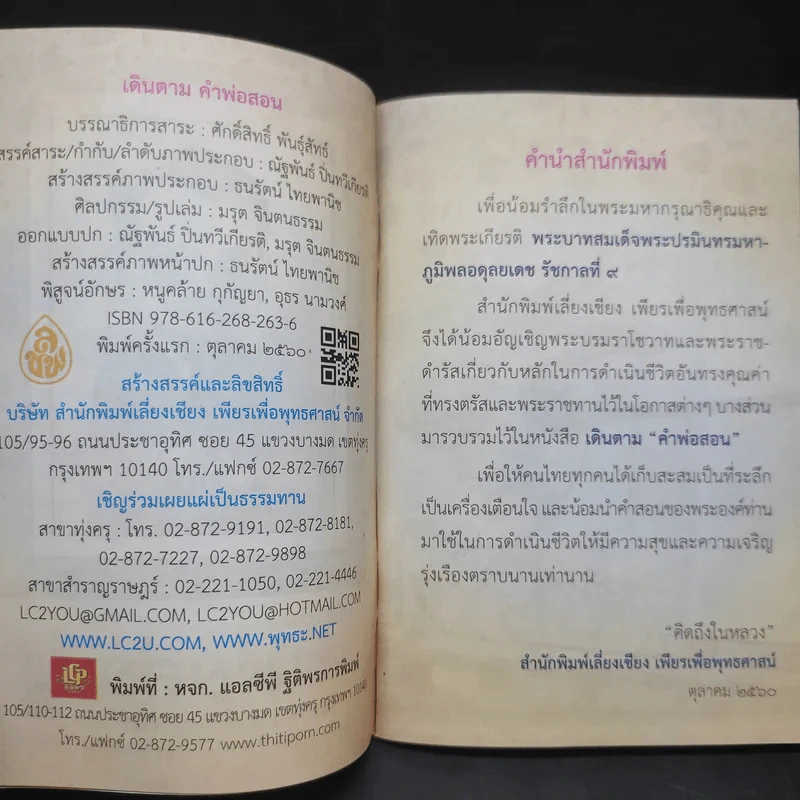 เดินตาม คำพ่อสอน
บรรณาธิการสาระ : ศักดิ์สิทธิ์ พันธุ์สัทธ์
สรรค์สาระ/กำกับ/ลำดับภาพประกอบ : ณัฐพันธ์ ปิ่นทวีเกียรติ
สร้างสรรค์ภาพประกอบ : ธนรัตน์ ไทยพานิช
ศิลปกรรม/รูปเล่ม : มรุต จินตนธรรม
ออกแบบปก : ณัฐพันธ์ ปิ่นทวีเกียรติ, มรุต จินตนธรรม
สร้างสรรค์ภาพหน้าปก : ธนรัตน์ ไทยพานิช
พิสูจน์อักษร : หนูคล้าย กุกัญยา, อุธร นามวงศ์
ISBN 978-616-268-263-6
พิมพ์ครั้งแรก : ตุลาคม ๒๕๖๐
สร้างสรรค์และลิขสิทธิ์
บริษัท สำนักพิมพ์เลี่ยงเชียง เพียรเพื่อพุทธศาสน์ จำกัด
105/95-96 ถนนประชาอุทิศ ซอย 45 แขวงบางมด เขตทุ่งครุ
กรุงเทพฯ 10140 โทร./แฟกซ์ 02-872-7667
เชิญร่วมเผยแผ่เป็นธรรมทาน
สาขาทุ่งครุ : โทร. 02-872-9191, 02-872-8181,
02-872-7227, 02-872-9898
สาขาสำราญราษฎร์ : 02-221-1050, 02-221-4446
LC2YOU@GMAIL.COM, LC2YOU@HOTMAIL.COM
WWW.LC2U.COM, WWW.พุทธะ.NET
LCP
พิมพ์ที่ : หจก. แอลซีพี ฐิติพรการพิมพ์
105/110-112 ถนนประชาอุทิศ ซอย 45 แขวงบางมด เขตทุ่งครุ กรุงเทพฯ 10140
โทร./แฟกซ์ 02-872-9577 www.thitiporn.com
คำนำสำนักพิมพ์
เพื่อน้อมรำลึกในพระมหากรุณาธิคุณและ
เทิดพระเกียรติ พระบาทสมเด็จพระปรมินทรมหา-
ภูมิพลอดุลยเดช รัชกาลที่ ๙
สำนักพิมพ์เลี่ยงเชียง เพียรเพื่อพุทธศาสน์
จึงได้น้อมอัญเชิญพระบรมราโชวาทและพระราช-
ดำรัสเกี่ยวกับหลักในการดำเนินชีวิตอันทรงคุณค่า
ที่ทรงตรัสและพระราชทานไว้ในโอกาสต่างๆ บางส่วน
มารวบรวมไว้ในหนังสือ เดินตาม “คำพ่อสอน”
เพื่อให้คนไทยทุกคนได้เก็บสะสมเป็นที่ระลึก
เป็นเครื่องเตือนใจ และน้อมนำคำสอนของพระองค์ท่าน
มาใช้ในการดำเนินชีวิตให้มีความสุขและความเจริญ
รุ่งเรืองตราบนานเท่านาน
“คิดถึงในหลวง”
สำนักพิมพ์เลี่ยงเชียง เพียรเพื่อพุทธศาสน์
ตุลาคม ๒๕๖๐